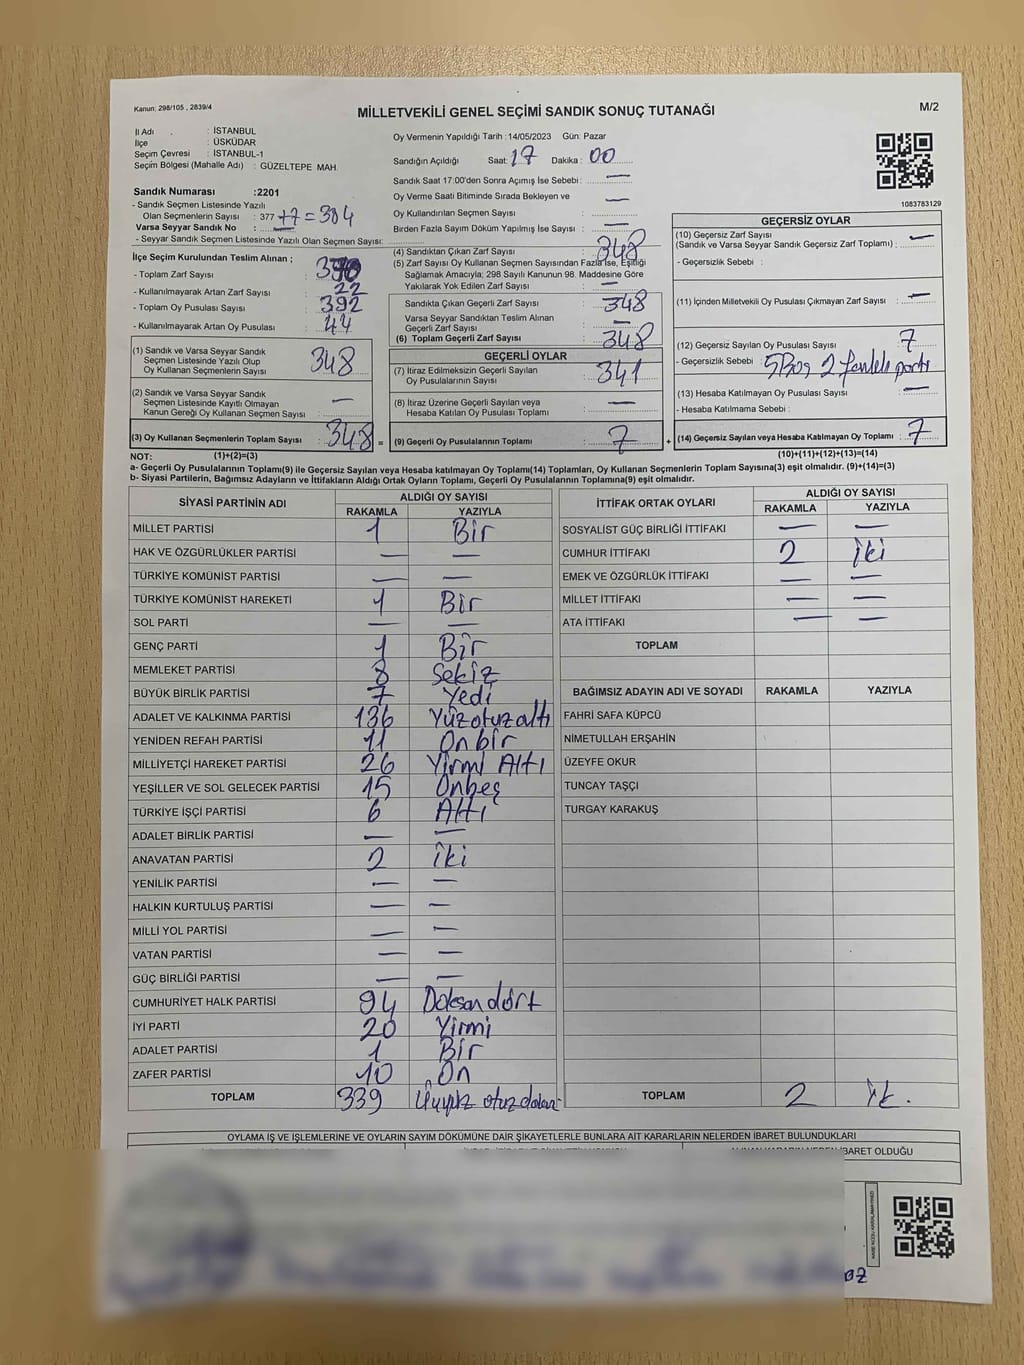 Kanun: 298/105 , 2839/4
MİLLETVEKİLİ GENEL SEÇİMİ SANDIK SONUÇ TUTANAĞI
M/2
İl Adı : İSTANBUL
İlçe : ÜSKÜDAR
Seçim Çevresi : İSTANBUL-1
Seçim Bölgesi (Mahalle Adı) : GÜZELTEPE MAH.
Sandık Numarası :2201
- Sandık Seçmen Listesinde Yazılı
Olan Seçmenlerin Sayısı : 377 +7 = 384
Varsa Seyyar Sandık No : —
- Seyyar Sandık Seçmen Listesinde Yazılı Olan Seçmen Sayısı:
Oy Vermenin Yapıldığı Tarih : 14/05/2023 Gün: Pazar
Sandığın Açıldığı Saat: 17 Dakika : 00
Sandık Saat 17:00'den Sonra Açımış İse Sebebi : —
Oy Verme Saati Bitiminde Sırada Bekleyen ve
Oy Kullandırılan Seçmen Sayısı —
Birden Fazla Sayım Döküm Yapılmış İse Sayısı : —
1083783129
İlçe Seçim Kurulundan Teslim Alınan ;
- Toplam Zarf Sayısı :
- Kullanılmayarak Artan Zarf Sayısı : 22
- Toplam Oy Pusulası Sayısı : 392
- Kullanılmayarak Artan Oy Pusulası : 44
(1) Sandık ve Varsa Seyyar Sandık
Seçmen Listesinde Yazılı Olup
Oy Kullanan Seçmenlerin Sayısı : 348
(2) Sandık ve Varsa Seyyar Sandık
Seçmen Listesinde Kayıtlı Olmayan
Kanun Gereği Oy Kullanan Seçmen Sayısı : —
(3) Oy Kullanan Seçmenlerin Toplam Sayısı : 348 =
(4) Sandıktan Çıkan Zarf Sayısı : 348
(5) Zarf Sayısı Oy Kullanan Seçmen Sayısından Fazla İse, Eşitliği
Sağlamak Amacıyla; 298 Sayılı Kanunun 98. Maddesine Göre
Yakılarak Yok Edilen Zarf Sayısı : —
Sandıkta Çıkan Geçerli Zarf Sayısı : 348
Varsa Seyyar Sandıktan Teslim Alınan
Geçerli Zarf Sayısı : —
(6) Toplam Geçerli Zarf Sayısı : 348
GEÇERLİ OYLAR
(7) İtiraz Edilmeksizin Geçerli Sayılan
Oy Pusulalarının Sayısı : 341
(8) İtiraz Üzerine Geçerli Sayılan veya
Hesaba Katılan Oy Pusulası Toplamı : —
(9) Geçerli Oy Pusulalarının Toplamı : 7 +
GEÇERSİZ OYLAR
(10) Geçersiz Zarf Sayısı
(Sandık ve Varsa Seyyar Sandık Geçersiz Zarf Toplamı) : —
- Geçersizlik Sebebi :
(11) İçinden Milletvekili Oy Pusulası Çıkmayan Zarf Sayısı : —
(12) Geçersiz Sayılan Oy Pusulası Sayısı : 7
- Geçersizlik Sebebi : 5 Boş 2 parti
(13) Hesaba Katılmayan Oy Pusulası Sayısı : —
- Hesaba Katılmama Sebebi :
(14) Geçersiz Sayılan veya Hesaba Katılmayan Oy Toplamı : 7
NOT: (1)+(2)=(3) (10)+(11)+(12)+(13)=(14)
a- Geçerli Oy Pusulalarının Toplamı(9) ile Geçersiz Sayılan veya Hesaba katılmayan Oy Toplamı(14) Toplamları, Oy Kullanan Seçmenlerin Toplam Sayısına(3) eşit olmalıdır. (9)+(14)=(3)
b- Siyasi Partilerin, Bağımsız Adayların ve İttifakların Aldığı Ortak Oyların Toplamı, Geçerli Oy Pusulalarının Toplamına(9) eşit olmalıdır.
SİYASİ PARTİNİN ADI ALDIĞI OY SAYISI
RAKAMLA YAZIYLA
MİLLET PARTİSİ 1 Bir
HAK VE ÖZGÜRLÜKLER PARTİSİ — —
TÜRKİYE KOMÜNİST PARTİSİ — —
TÜRKİYE KOMÜNİST HAREKETİ 1 Bir
SOL PARTİ — —
GENÇ PARTİ 1 Bir
MEMLEKET PARTİSİ 8 Sekiz
BÜYÜK BİRLİK PARTİSİ 7 Yedi
ADALET VE KALKINMA PARTİSİ 136 Yüzotuzaltı
YENİDEN REFAH PARTİSİ 11 Onbir
MİLLİYETÇİ HAREKET PARTİSİ 26 Yirmi Altı
YEŞİLLER VE SOL GELECEK PARTİSİ 15 Onbeş
TÜRKİYE İŞÇİ PARTİSİ 6 Altı
ADALET BİRLİK PARTİSİ — —
ANAVATAN PARTİSİ 2 iki
YENİLİK PARTİSİ — —
HALKIN KURTULUŞ PARTİSİ — —
MİLLİ YOL PARTİSİ — —
VATAN PARTİSİ — —
GÜÇ BİRLİĞİ PARTİSİ — —
CUMHURİYET HALK PARTİSİ 94 Doksandört
İYİ PARTİ 20 Yirmi
ADALET PARTİSİ 1 Bir
ZAFER PARTİSİ 10 On
TOPLAM 339
İTTİFAK ORTAK OYLARI ALDIĞI OY SAYISI
RAKAMLA YAZIYLA
SOSYALİST GÜÇ BİRLİĞİ İTTİFAKI — —
CUMHUR İTTİFAKI 2 iki
EMEK VE ÖZGÜRLÜK İTTİFAKI — —
MİLLET İTTİFAKI — —
ATA İTTİFAKI — —
TOPLAM
BAĞIMSIZ ADAYIN ADI VE SOYADI RAKAMLA YAZIYLA
FAHRİ SAFA KÜPCÜ
NİMETULLAH ERŞAHİN
ÜZEYFE OKUR
TUNCAY TAŞÇI
TURGAY KARAKUŞ
TOPLAM 2
OYLAMA İŞ VE İŞLEMLERİNE VE OYLARIN SAYIM DÖKÜMÜNE DAİR ŞİKAYETLERLE BUNLARA AİT KARARLARIN NELERDEN İBARET BULUNDUKLARI
İBARET OLDUĞU